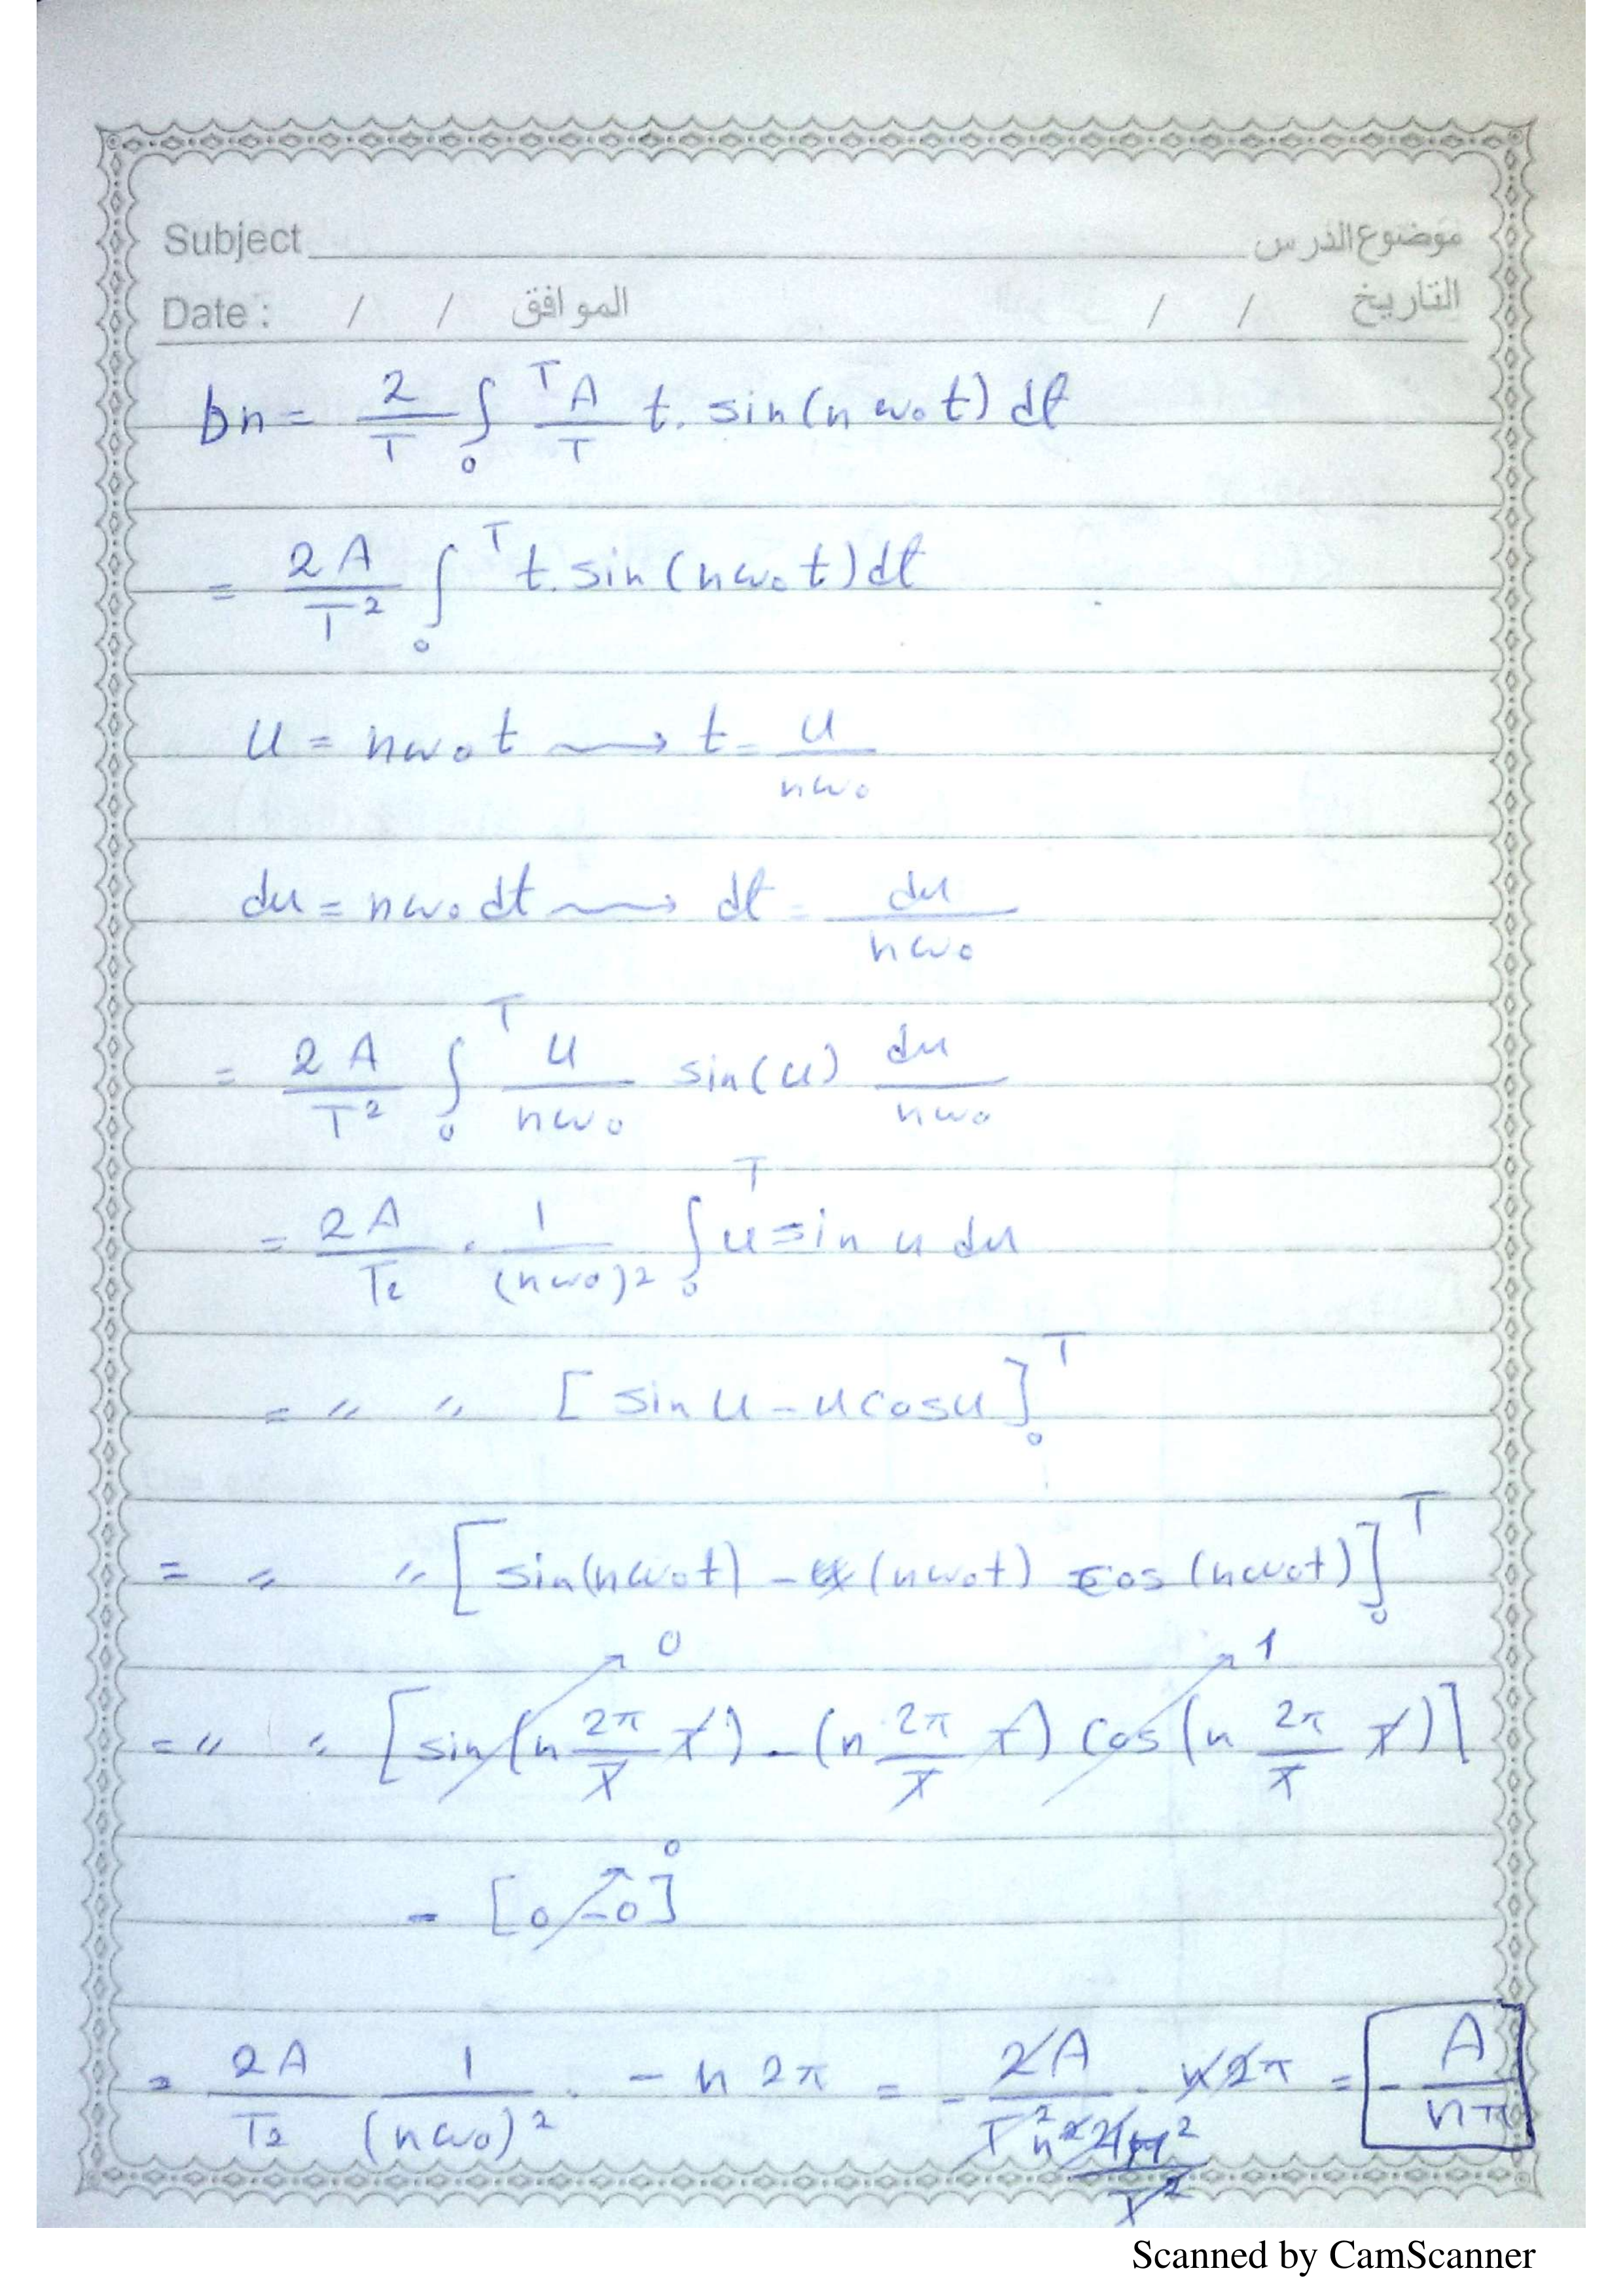 Subject موضوع الدرس
Date : / / الموافق / / التاريخ
bn = 2/T ∫₀ᵀ A/T t. sin(n ω₀ t) dt
= 2A/T² ∫₀ᵀ t. sin(nω₀t)dt
u = nω₀t ⟿ t = u/nω₀
du = nω₀ dt ⟿ dt = du/nω₀
= 2A/T² ∫₀ᵀ u/nω₀ sin(u) du/nω₀
= 2A/T² . 1/(nω₀)² ∫₀ᵀ u sin u du
= " " [sin u - u cos u]₀ᵀ
= " " [sin(nω₀t) - (nω₀t) cos (nω₀t)]₀ᵀ
0 1
= " " [sin(n 2π/T T) - (n 2π/T T) cos(n 2π/T T)]
0
- [0 - 0]
= 2A/T² 1/(nω₀)² . - n 2π = - 2A/T² n² 4π²/T² . n 2π = - A/nπ
Scanned by CamScanner